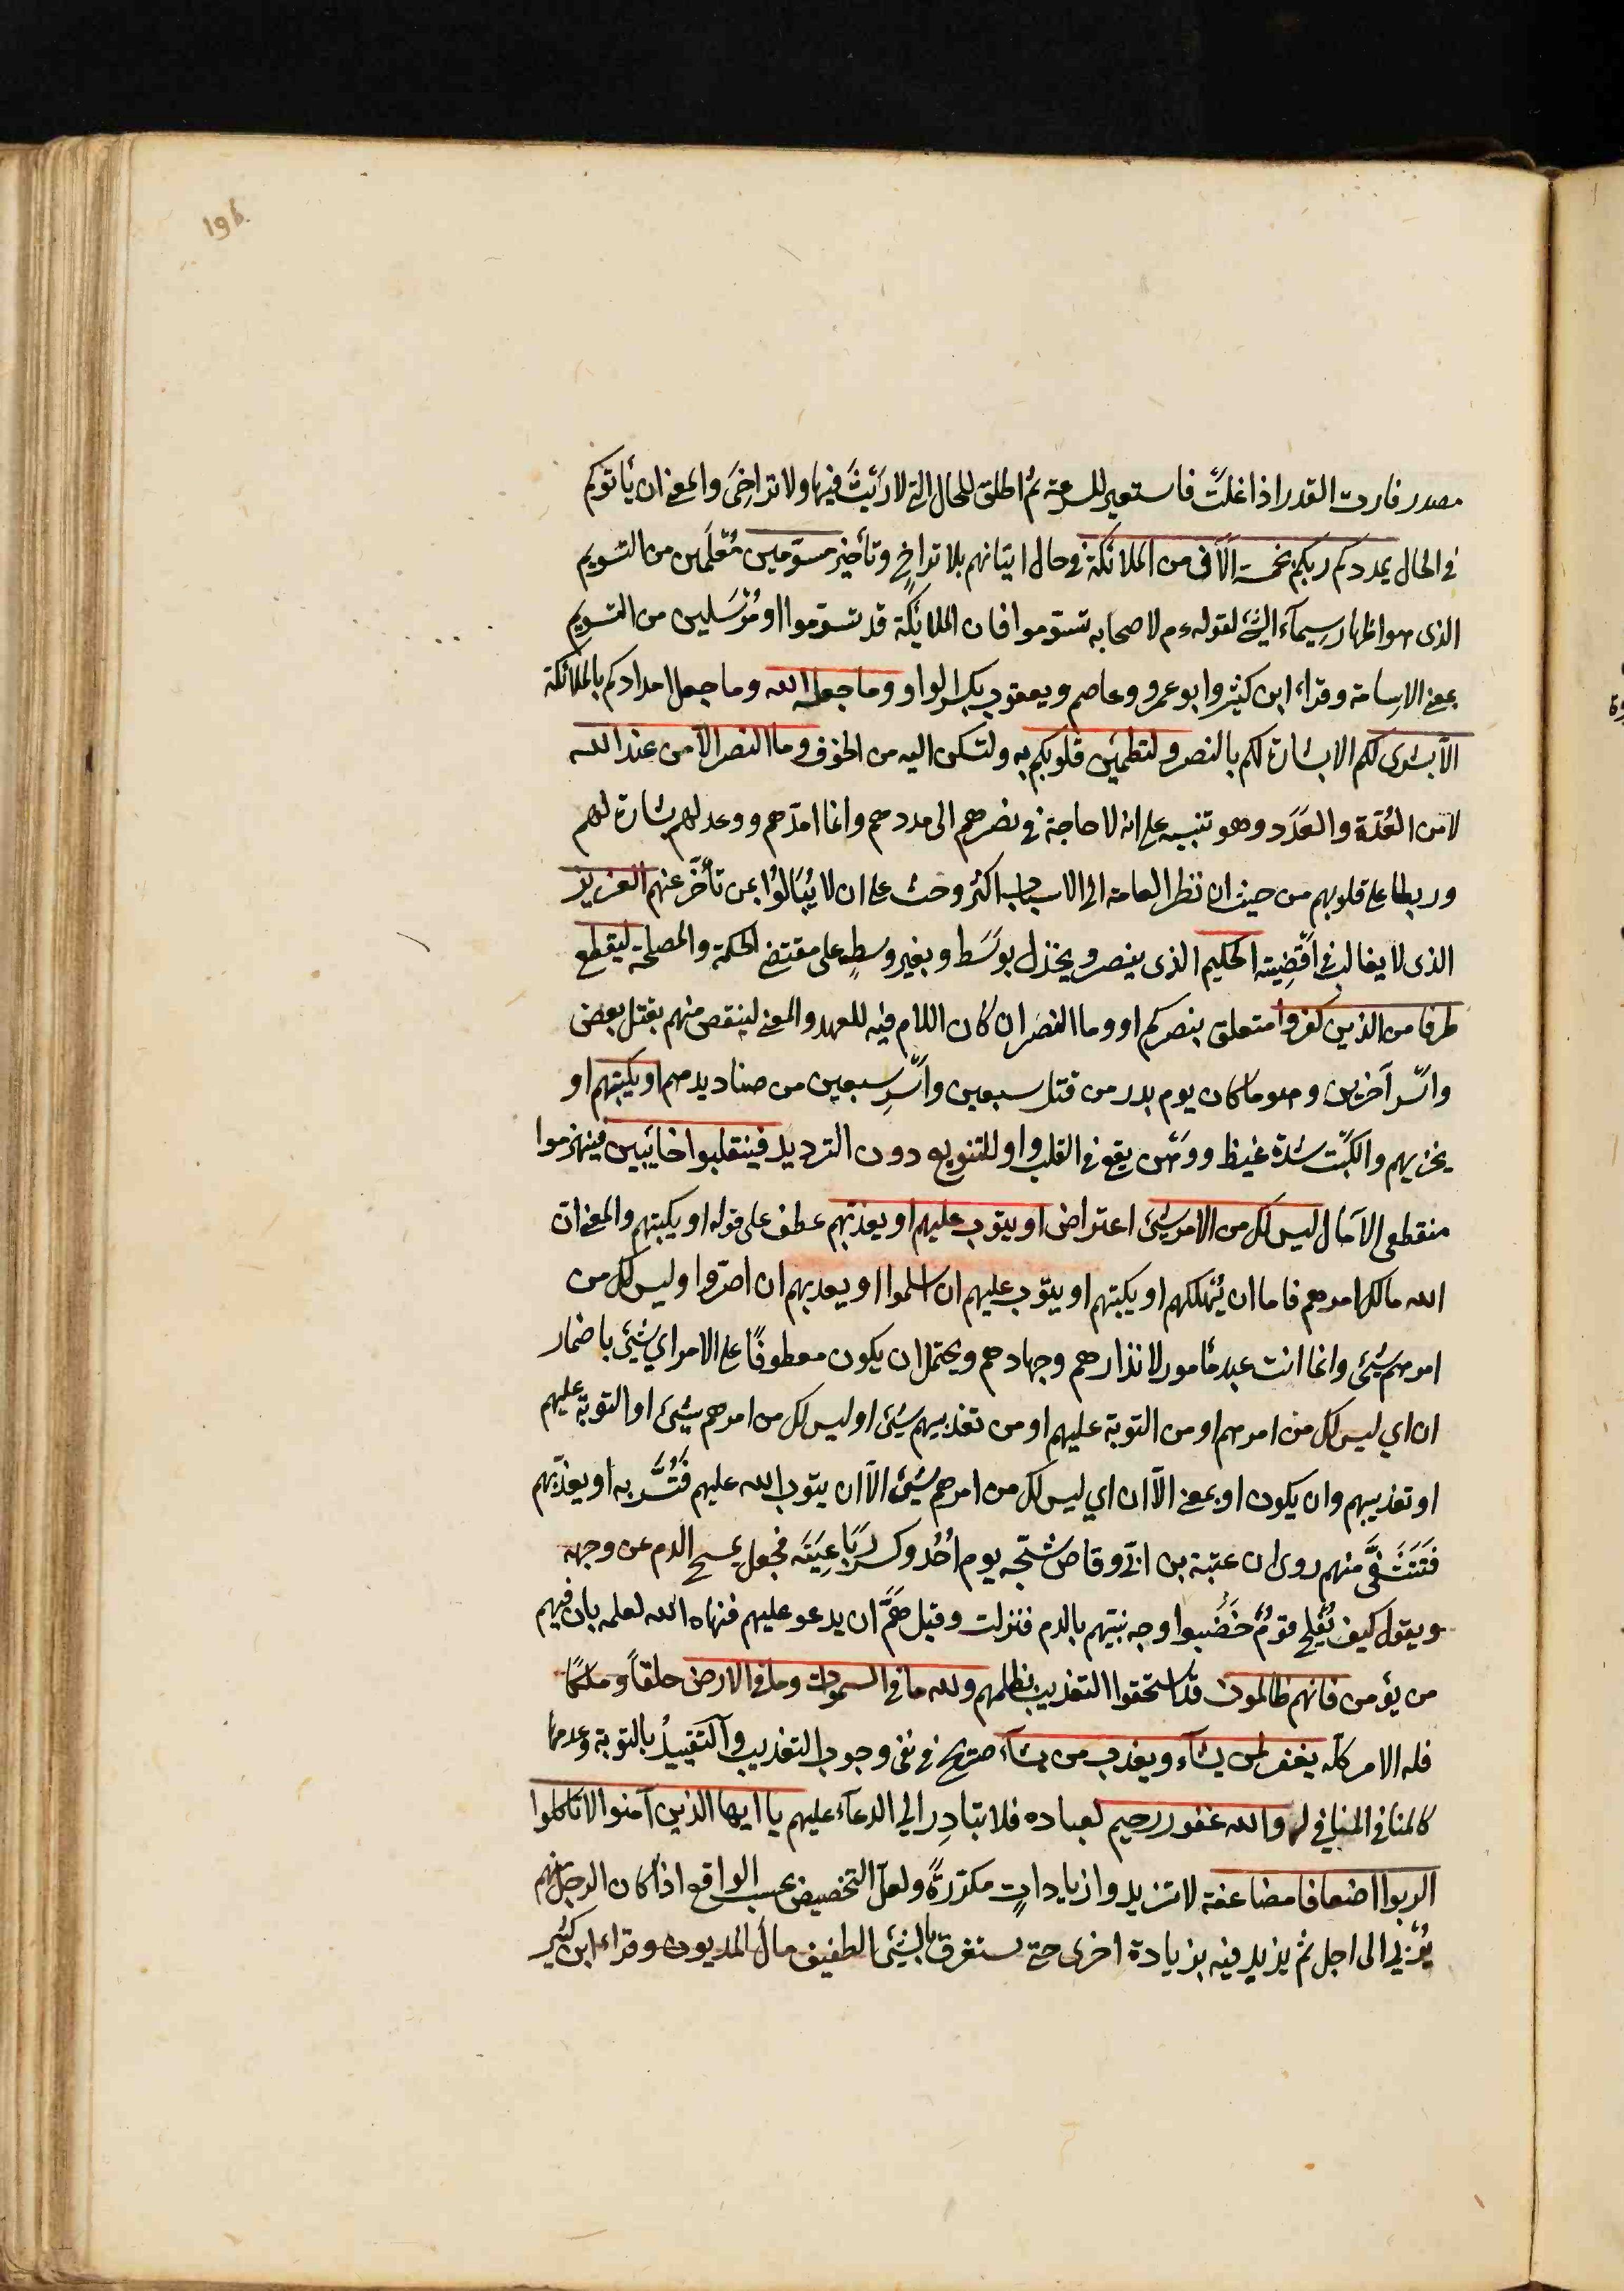 196.
مصدر فارت القدر اذا غلت فاستعير للسرعة ثم اطلق للحال التي لا ريث فيها ولا تراخى والمعنى ان يأتوكم
في الحال يمددكم ربكم بخمسة آلآف من الملائكة في حال اتيانهم بلا تراخ وتأخير مسومين معلمين من التسويم
الذى هو اظهار سيماء الشئ لقوله ءم لاصحابه تسوموا فان الملائكة قد تسوموا او مرسلين من التسويم
بمعنى الاسامة وقراء ابن كثير وابو عمرو وعاصم ويعقوب بكسر الواو وما جعله الله وما جعل امدادكم بالملائكة
الا بشرى لكم الا بشارة لكم بالنصر ولتطمئن قلوبكم به ولتسكن اليه من الخوف وما النصر الا من عند الله
لا من العدة والعدد وهو تنبيه على انه لا حاجة في نصرهم الى مدد هم وانما امدهم ووعد لهم بشارة لهم
وربطا على قلوبهم من حيث ان نظر العامة الى الاسباب اكثر وحث على ان لا يبالوا بمن تأخر عنهم العزيز
الذى لا يغالب في اقضيته الحكيم الذى ينصر ويخذل بوسط وبغير وسط على مقتضى الحكمة والمصلحة ليقطع
طرفا من الذين كفروا متعلق بنصركم او وما النصر ان كان اللام فيه للعهد والمعنى لينقص منهم بقتل بعض
واسر آخرين وهو ما كان يوم بدر من قتل سبعين واسر سبعين من صناديدهم او يكبتهم او
يخزيهم والكبت شدة غيظ او وهن يقع في القلب واو للتنويع دون الترديد فينقلبوا خائبين فينهزموا
منقطعى الآمال ليس لك من الامر شئ اعتراض او يتوب عليهم او يعذبهم عطف على قوله او يكبتهم والمعنى ان
الله مالك امرهم فاما ان يهلكهم او يكبتهم او يتوب عليهم ان اسلموا او يعذبهم ان اصروا وليس لك من
امرهم شئ وانما انت عبد مأمور لانذارهم وجهادهم ويحتمل ان يكون معطوفا على الامر اي شئ باضمار
ان اي ليس لك من امرهم او من التوبة عليهم او من تعذيبهم شئ او ليس لك من امرهم شئ او التوبة عليهم
او تعذيبهم وان يكون او بمعنى الا ان اي ليس لك من امرهم شئ الا ان يتوب الله عليهم فتسر به او يعذبهم
فتتشفى منهم روى ان عتبة بن ابي وقاص شجه يوم احد وكسر رباعيته فجعل يمسح الدم عن وجهه
ويقول كيف يفلح قوم خضبوا وجه نبيهم بالدم فنزلت وقيل هم ان يدعو عليهم فنهاه الله لعلمه بان فيهم
من يؤمن فانهم ظالمون قد استحقوا التعذيب بظلمهم ولله ما في السموات وما في الارض خلقا وملكا
فله الامر كله يغفر لمن يشآء ويعذب من يشآء صريح في نفى وجوب التعذيب والتقييد بالتوبة وعدمها
كالمنافى المنافي له والله غفور رحيم لعباده فلا تبادر الى الدعآء عليهم يا ايها الذين آمنوا لا تأكلوا
الربوا اضعافا مضاعفة لا تزيدوا زيادات مكررة ولعل التخصيص بحسب الواقع اذا كان الرجل منهم
يربي الى اجل ثم يزيد فيه بزيادة اخرى حتى يستغرق بالشئ الطفيف مال المديون وقراء ابن كثير